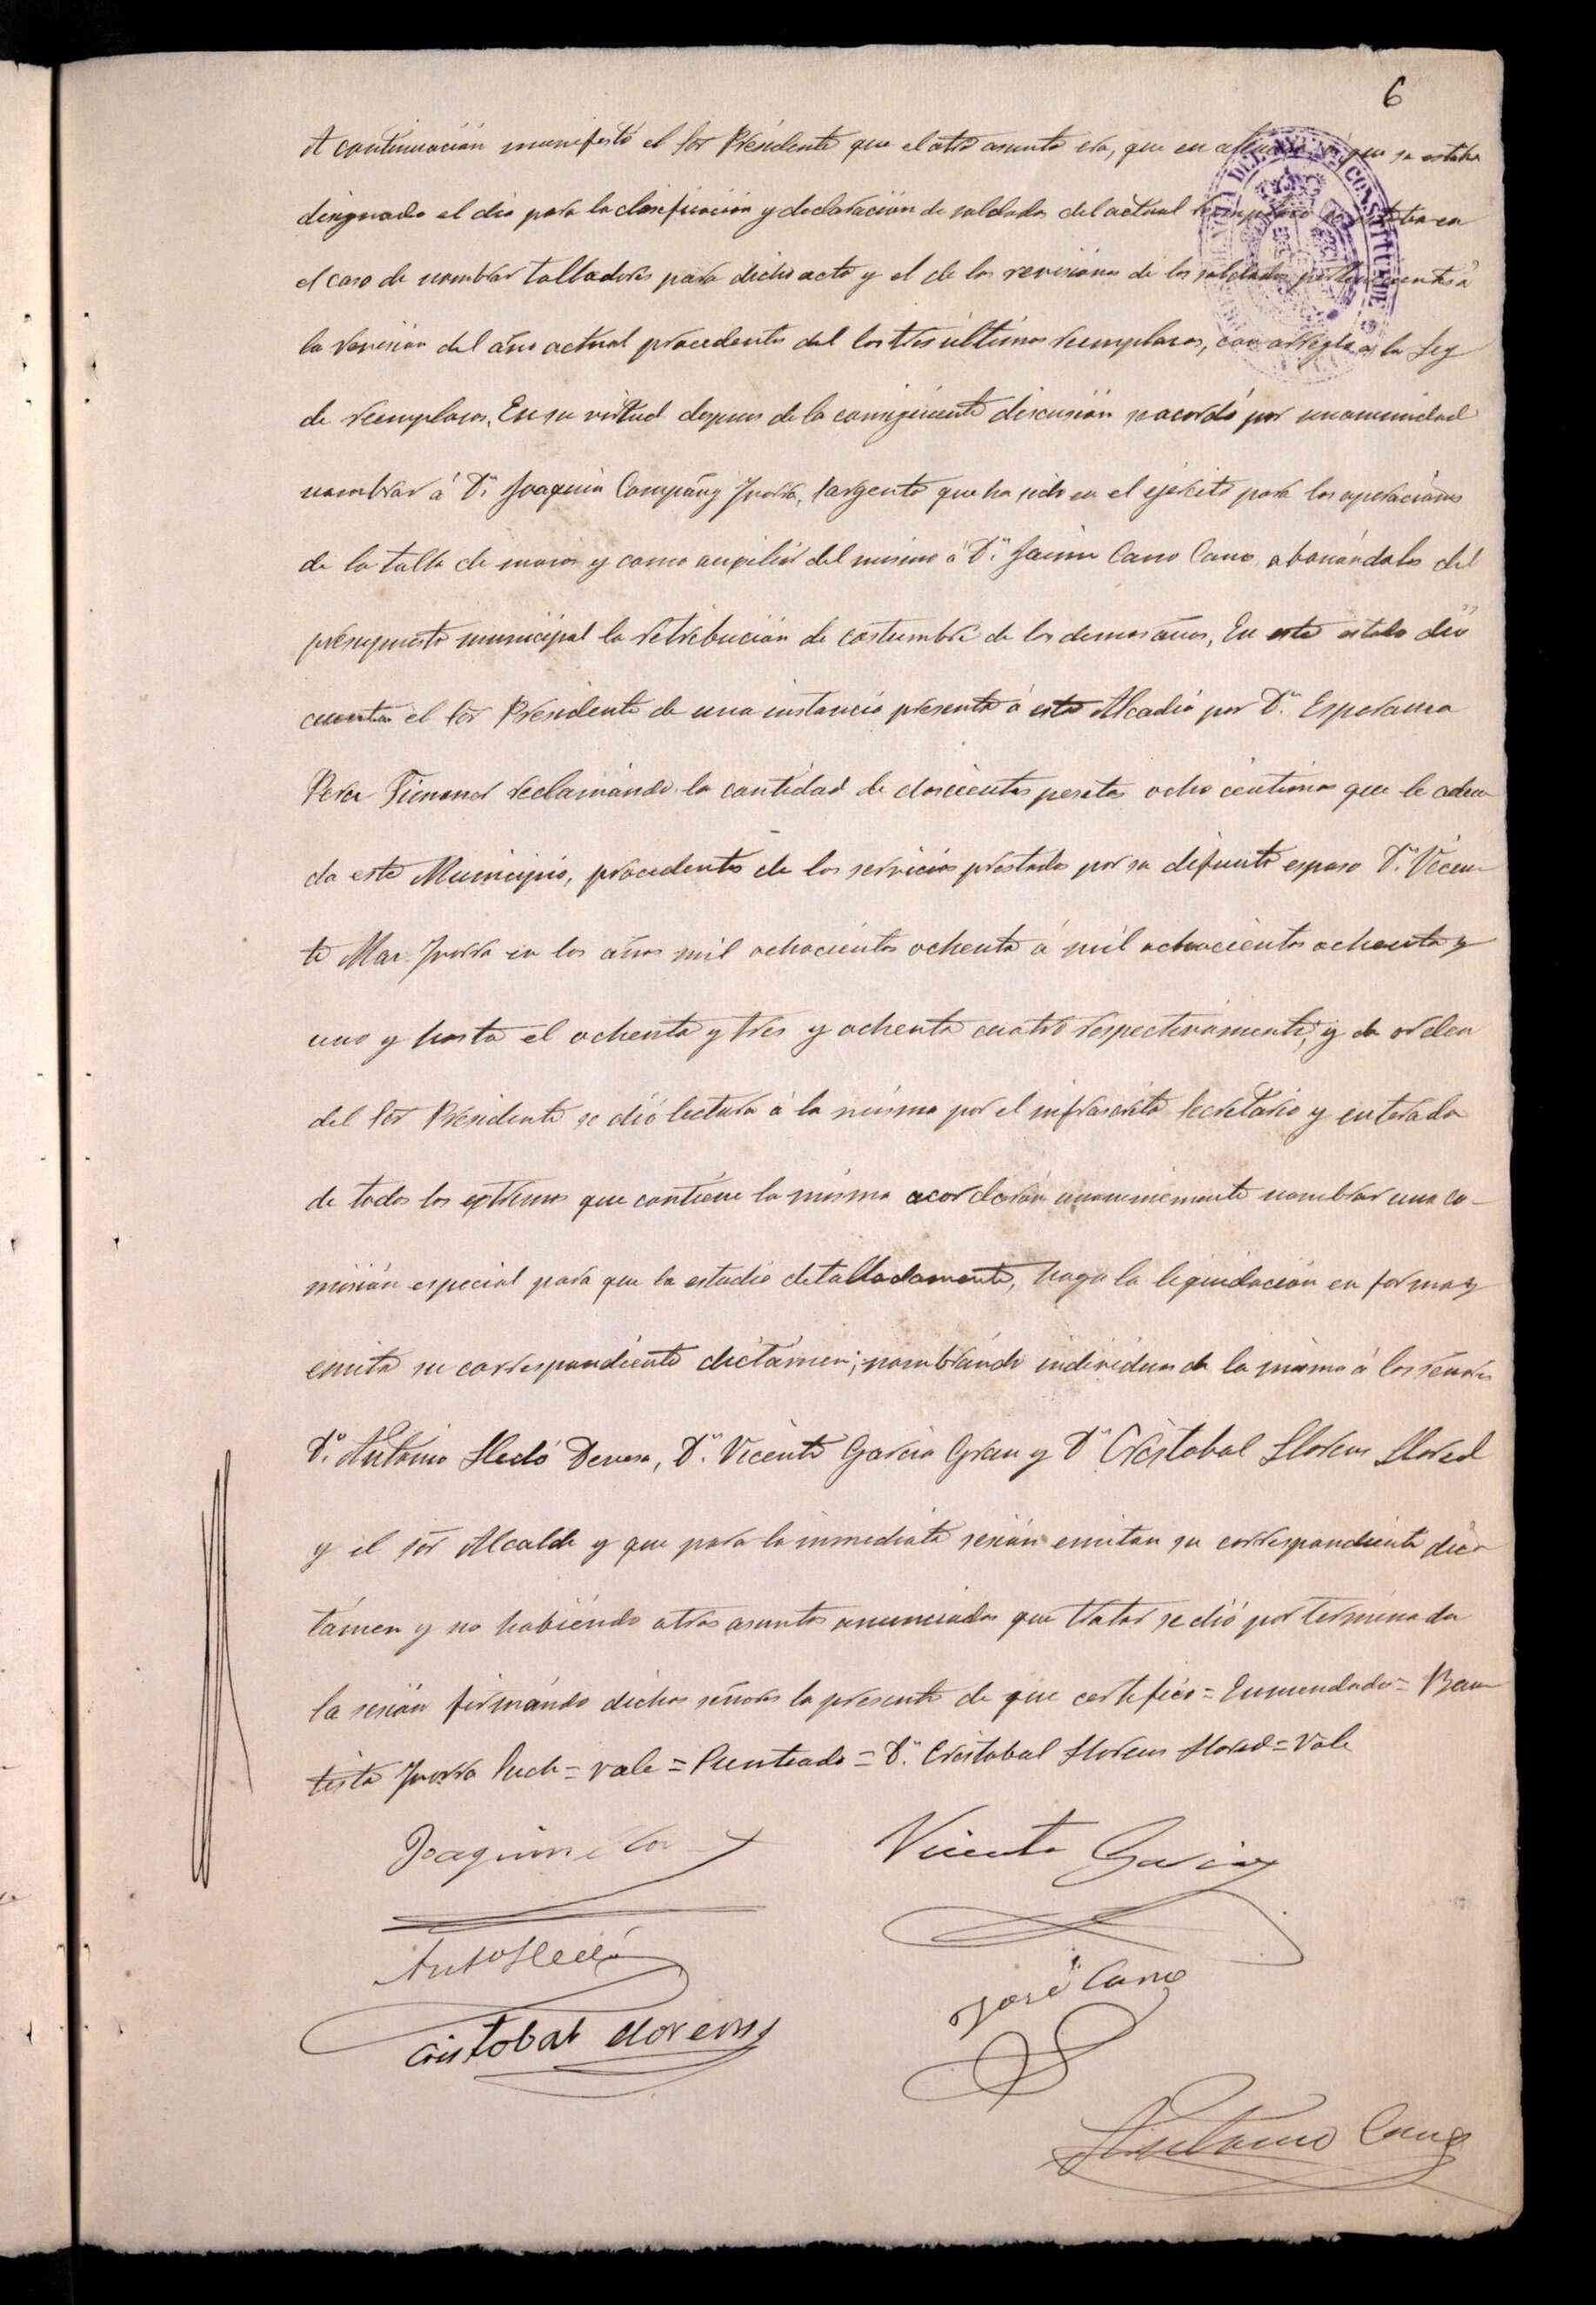 6
A continuación manifestó el Sor Presidente que el otro asunto era, que en atención á que se estaba
designado el dia para la clasificación y declaración de soldados del actual reemplazo se estaba en
el caso de nombrar talladores para dicho acto y el de las revisiones de los soldados pertenecientes á
la revisión del año actual procedentes del los tres últimos reemplazos, con arreglo á la Ley
de reemplazos, En su virtud despues de la consiguiente discusión se acordó por unanimidad
nombrar á Dn. Joaquin Company Yvorra, Sargento que ha sido en el ejército para las operaciones
de la talla de mozos y como auxiliar del mismo á Dn. Jaime Cano Cano abonándoles del
presupuesto municipal la retribución de costumbre de los demas años, En este estado dió
cuenta el Sor Presidente de una instancia presenta á esta Alcadia por Da. Esperanza
Perez reclamando la cantidad de doscientas pesetas ocho céntimos que le adeu
da este Municipio, procedentes de los servicios prestados por su difunto esposo Dn. Vicen
te Mar. Yvorra en los años mil ochocientos ochenta á mil ochocientos ochenta y
uno y hasta el ochenta y tres y ochenta cuatro respectivamente, y de orden
del Sor Presidente se dió lectura á la misma por el infrascrito Secretario y enterada
de todos los extremos que contiene la misma acordaron unanimemente nombrar una co-
misión especial para que la estudie detalladamente, haga la liquidación en forma y
emita su correspondiente dictámen; nombrando individuos de la misma á los señores
Dn. Antonio Lledó Devesa, Dn. Vicente Garcia Grau y Dn Cristobal Llorens Llored
y el sór Alcalde y que para la inmediata sesión emitan su correspondiente dic-
támen y no habiendo otros asuntos anunciados que tratar se dió por terminada
la sesión firmándo dichos señores la presente de que certifico = Enmendado = Bau
tista Yvorra Puch = vale = Punteado = Dn. Cristobal Llorens Llored = Vale
Joaquin
Vicente Garcia
Anto Lledó
José Cano
Cristobal Llorens
Antonio Cano